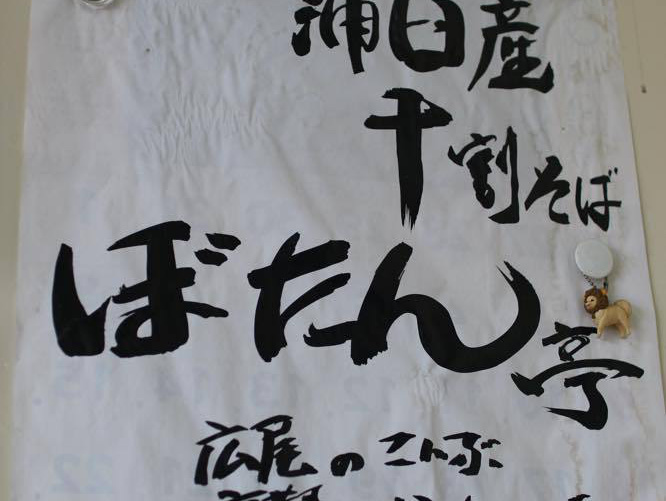 浦臼産
十割そば
ぼたん亭
広尾のこんぶ